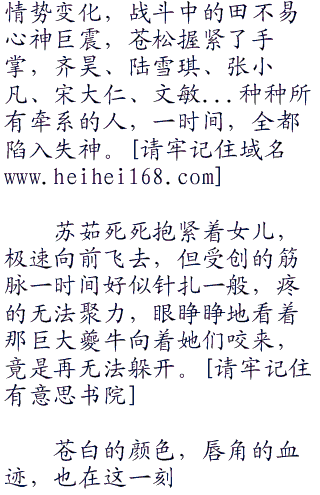 情势变化，战斗中的田不易
心神巨震，苍松握紧了手
掌，齐昊、陆雪琪、张小
凡、宋大仁、文敏...种种所
有牵系的人，一时间，全都
陷入失神。[请牢记住域名
www.heihei168.com]
苏茹死死抱紧着女儿，
极速向前飞去，但受创的筋
脉一时间好似针扎一般，疼
的无法聚力，眼睁睁地看着
那巨大夔牛向着她们咬来，
竟是再无法躲开。[请牢记住
有意思书院]
苍白的颜色，唇角的血
迹，也在这一刻